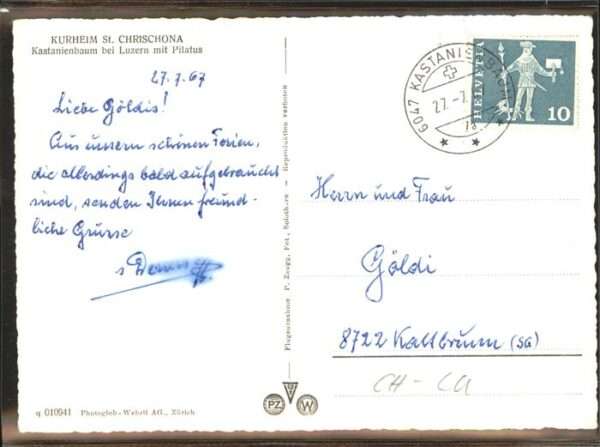 KURHEIM St. CHRISCHONA
Kastanienbaum bei Luzern mit Pilatus
27.7.67
Liebe Göldis!
Aus unsern schönen Ferien,
die allerdings bald aufgebraucht
sind, senden Ihnen freund-
liche Grüsse
q 010941 Photogleb-Wehrli AG., Zürich
Flugaufnahme P. Zaugg, Fot., Solothurn — Reproduktion verboten
PZ W
6047 KASTANIENBAUM
27.-7.
HELVETIA
10
Herrn und Frau
Göldi
8722 Kaltbrunn (SG)
CH - CA